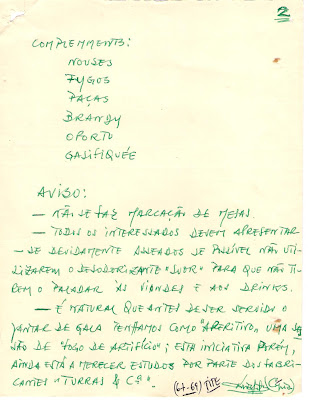 2
COMPLEMMENTS:
NOUSES
FYGOS
PAÇAS
BRANDY
OPORTO
GASIFIQUÉE
AVISO:
— NÃO SE FAZ MARCAÇÃO DE MESAS.
— TODOS OS INTERESSADOS DEVEM APRESENTAR
— SE DEVIDAMENTE ASSEADOS SE POSSIVEL NÃO UTI-
LIZAREM O DESODERIZANTE "SUOR" PARA QUE NÃO TI-
REM O PALADAR ÀS VIANDES E AOS DRINKS.
— É NATURAL QUE ANTES DE SER SERVIDO O
JANTAR DE GALA TENHAMOS COMO APERITIVO, UMA SES
SÃO DE "FOGO DE ARTIFÍCIO"; ESTA INICIATIVA PORÉM,
AINDA ESTÁ A MERECER ESTUDOS POR PARTE DOS FABRI-
CANTES "TURRAS & Cª."
(67-69) TITE